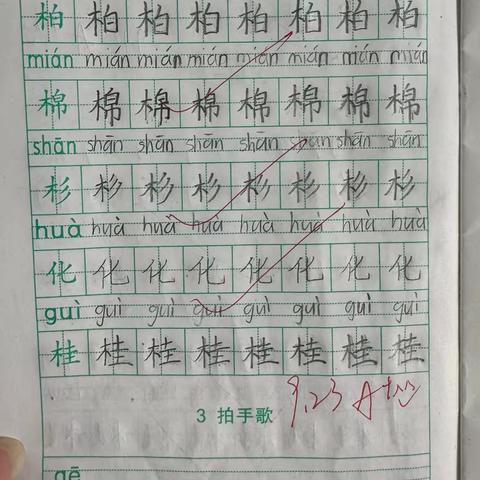 柏 柏 柏 柏 柏 柏 柏 柏
mián mián mián mián mián mián mián mián
棉 棉 棉 棉 棉 棉 棉 棉
shān shān shān shān shān shān shān shān
杉 杉 杉 杉 杉 杉 杉 杉
huà huà huà huà huà huà huà huà
化 化 化 化 化 化 化 化
guì guì guì guì guì guì guì guì
桂 桂 桂 桂 桂 桂 桂 桂
9.23 A+
3 拍手歌